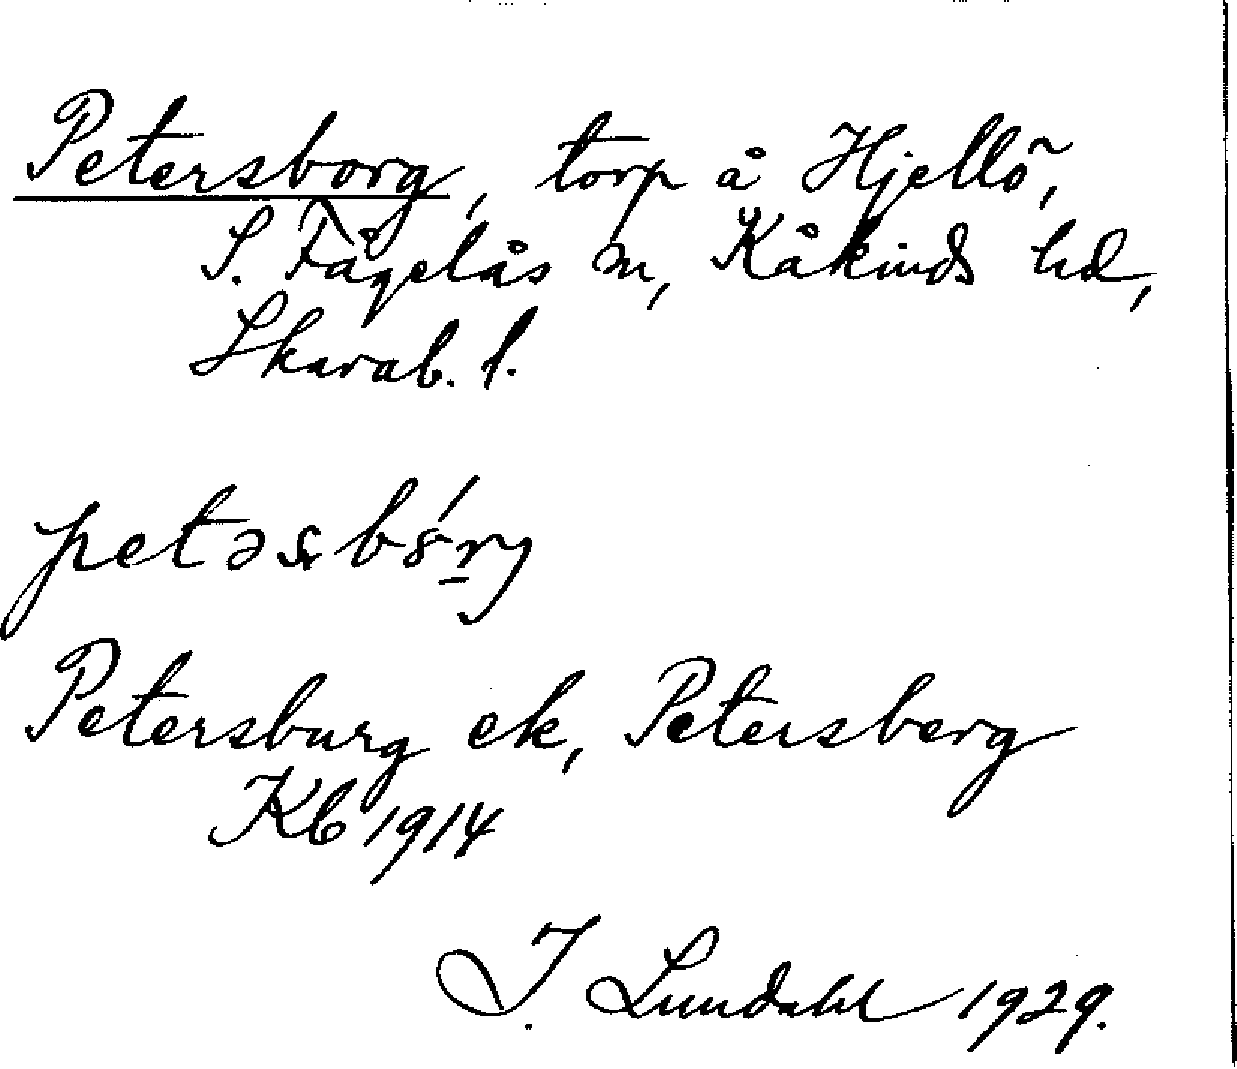 Petersborg, torp å Hjellö,
S. Fågelås sn, Kåkinds hd,
Skarab. l.
Petersburg ek, Petersberg
Kb 1914
J. Lundahl 1929.